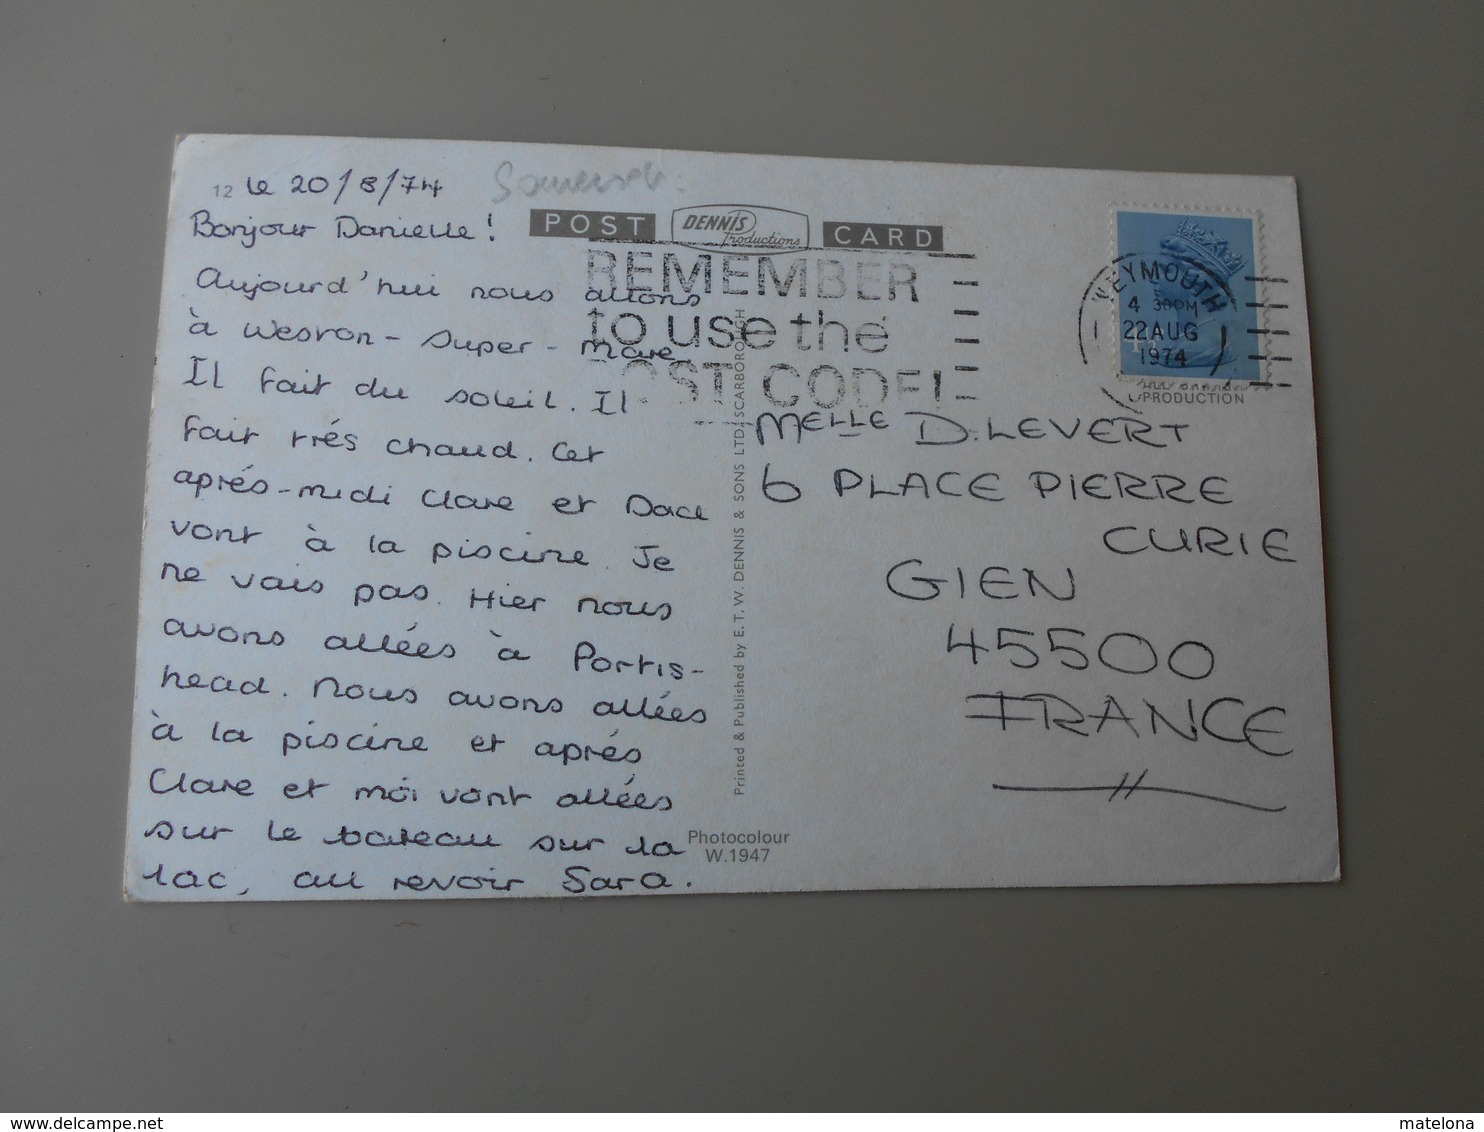 12 le 20/8/74
Somerset.
Bonjour Danielle!
Aujourd'hui nous allons
à Weston-Super-Mare
Il fait du soleil. Il
fait trés chaud. Cet
aprés-midi Clare et Dace
vont à la piscine. Je
ne vais pas. Hier nous
avons allées à Portis-
head. Nous avons allées
à la piscine et aprés
Clare et moi vont allées
sur le bateau sur la
lac, au revoir Sara.
POST DENNIS Productions CARD
REMEMBER
to use the
POST CODE!
WEYMOUTH
4 30PM
22 AUG
1974
PRODUCTION
Printed & Published by E. T. W. DENNIS & SONS LTD. SCARBOROUGH
MELLE D. LEVERT
6 PLACE PIERRE
CURIE
GIEN
45500
FRANCE
Photocolour
W.1947
delcampe.net
matelona